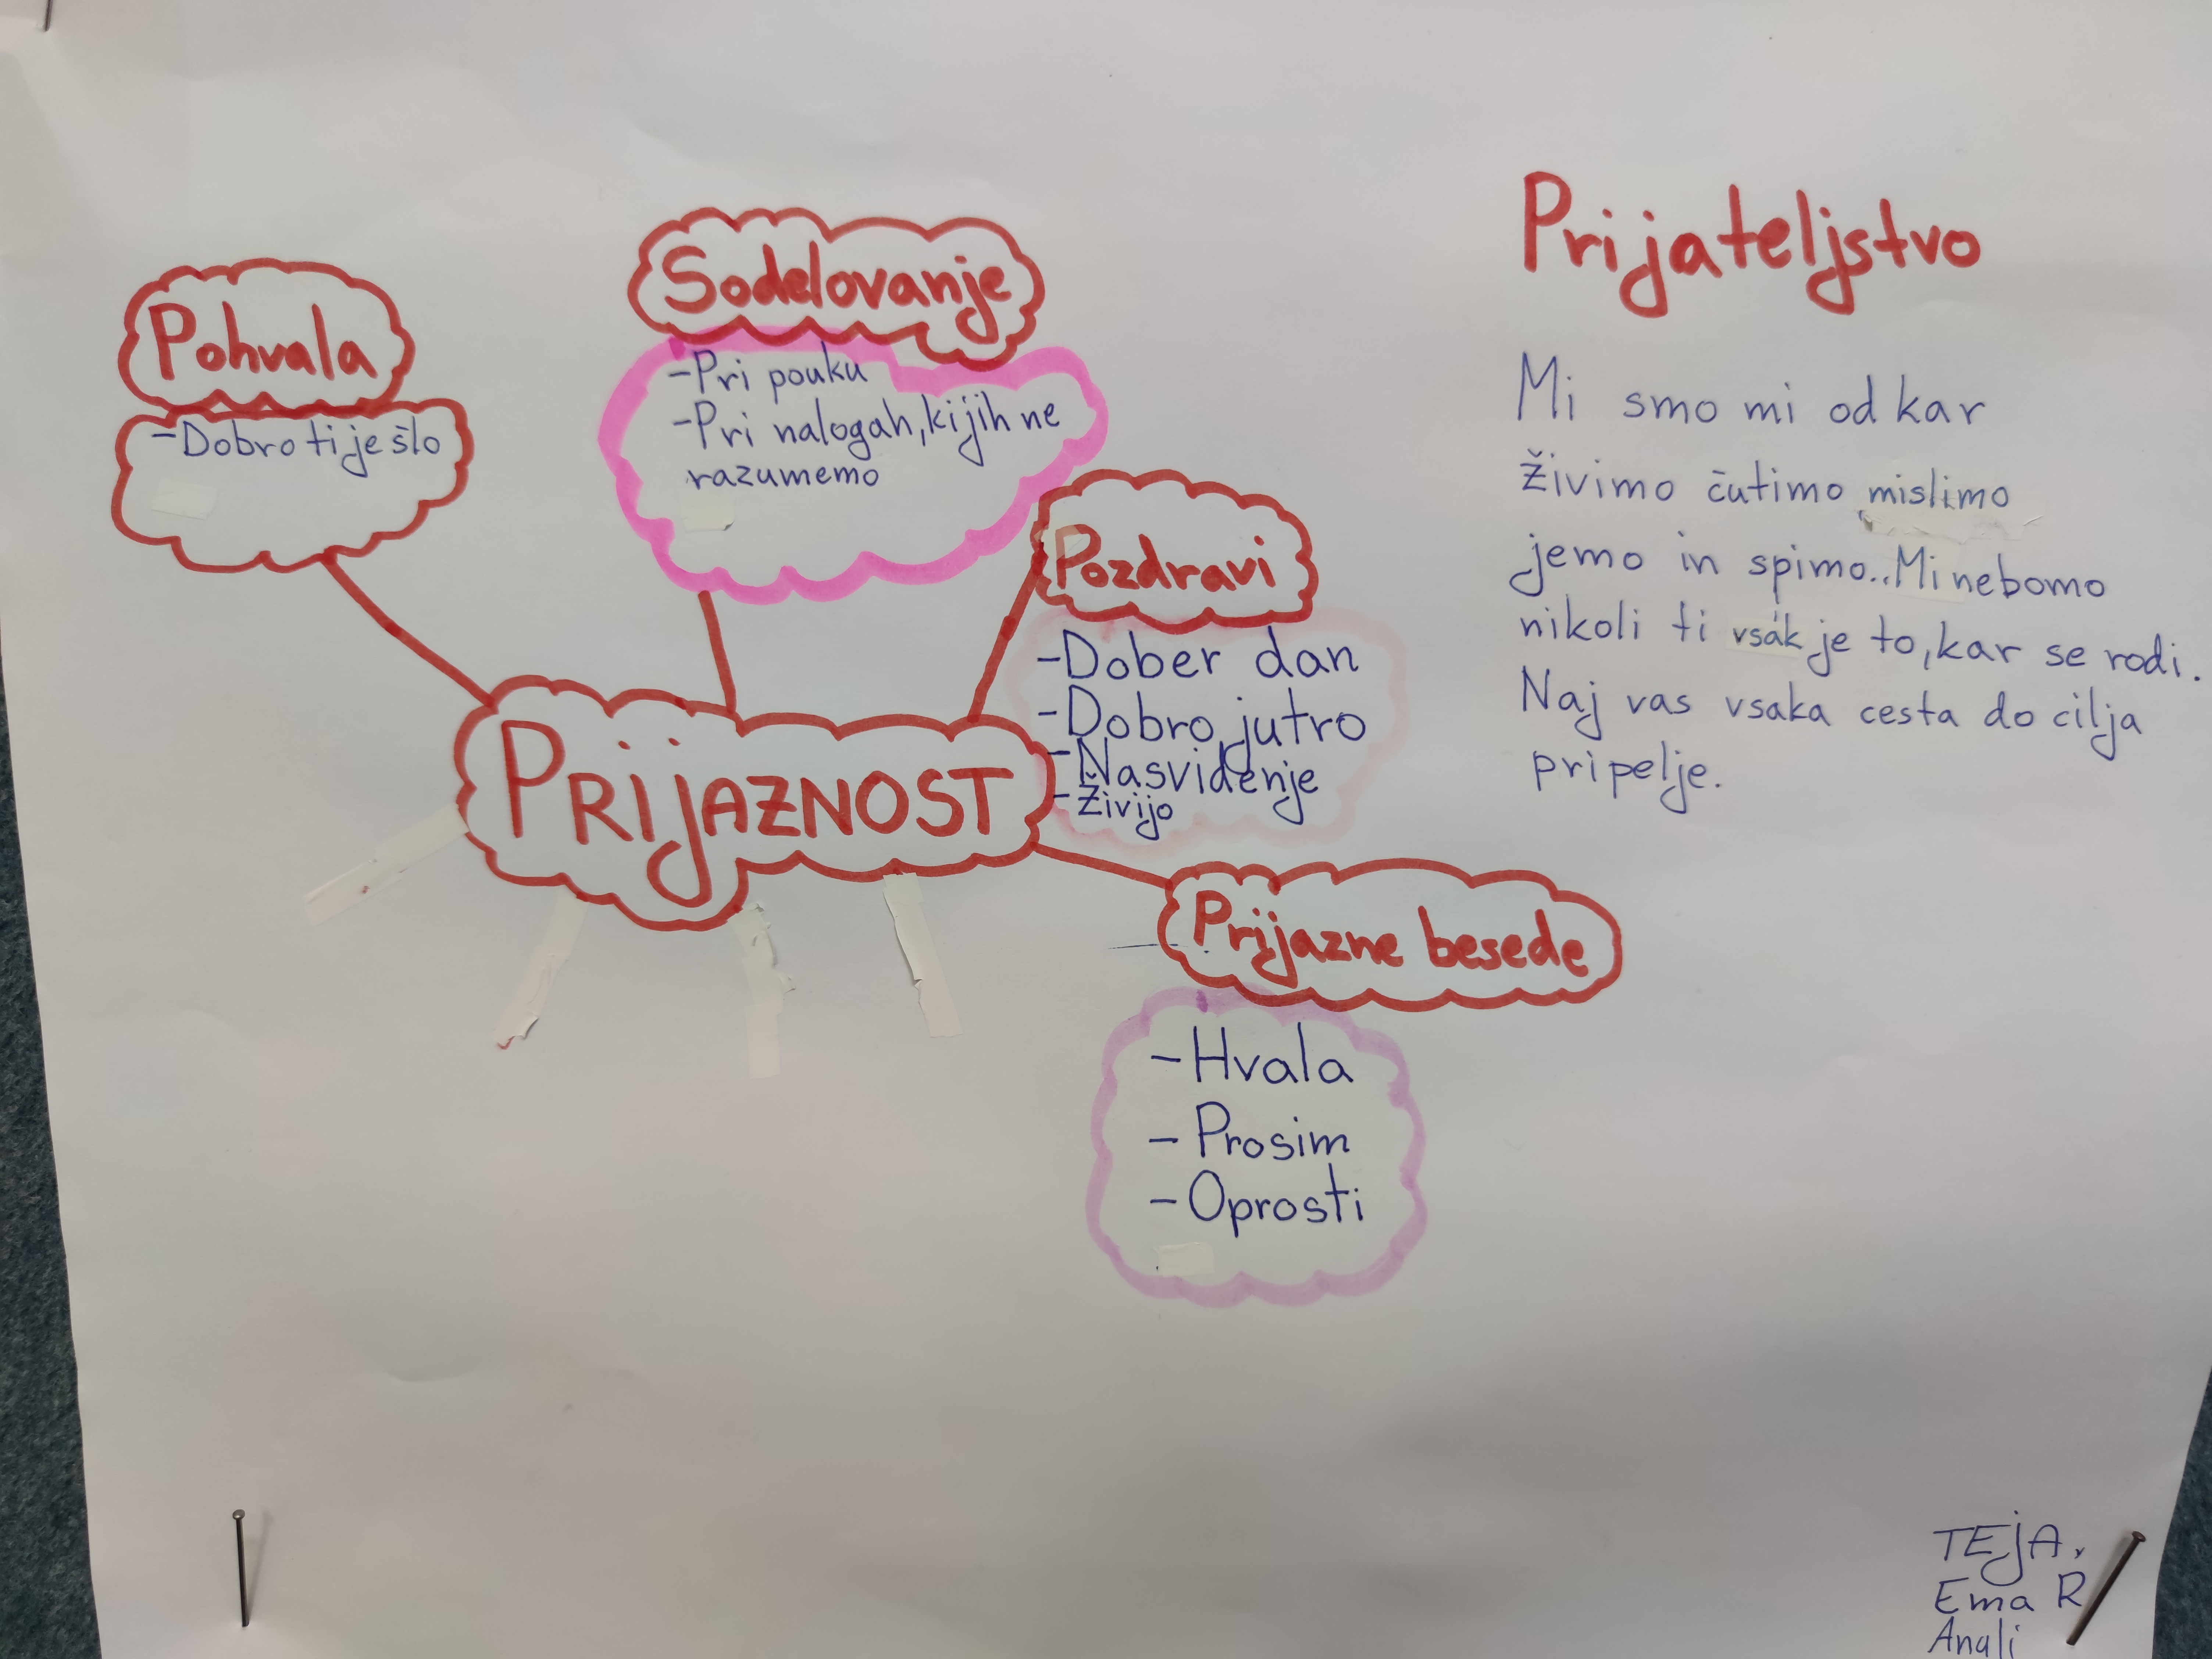 Pohvala
-Dobro ti je šlo
Sodelovanje
-Pri pouku
-Pri nalogah, ki jih ne
razumemo
Pozdravi
-Dober dan
-Dobro jutro
-Nasvidenje
-Živijo
PRIJAZNOST
Prijazne besede
-Hvala
-Prosim
-Oprosti
Prijateljstvo
Mi smo mi od kar
živimo čutimo mislimo
jemo in spimo.. Mi nebomo
nikoli ti vsak je to, kar se rodi.
Naj vas vsaka cesta do cilja
pripelje.
TEJA,
Ema R
Anali